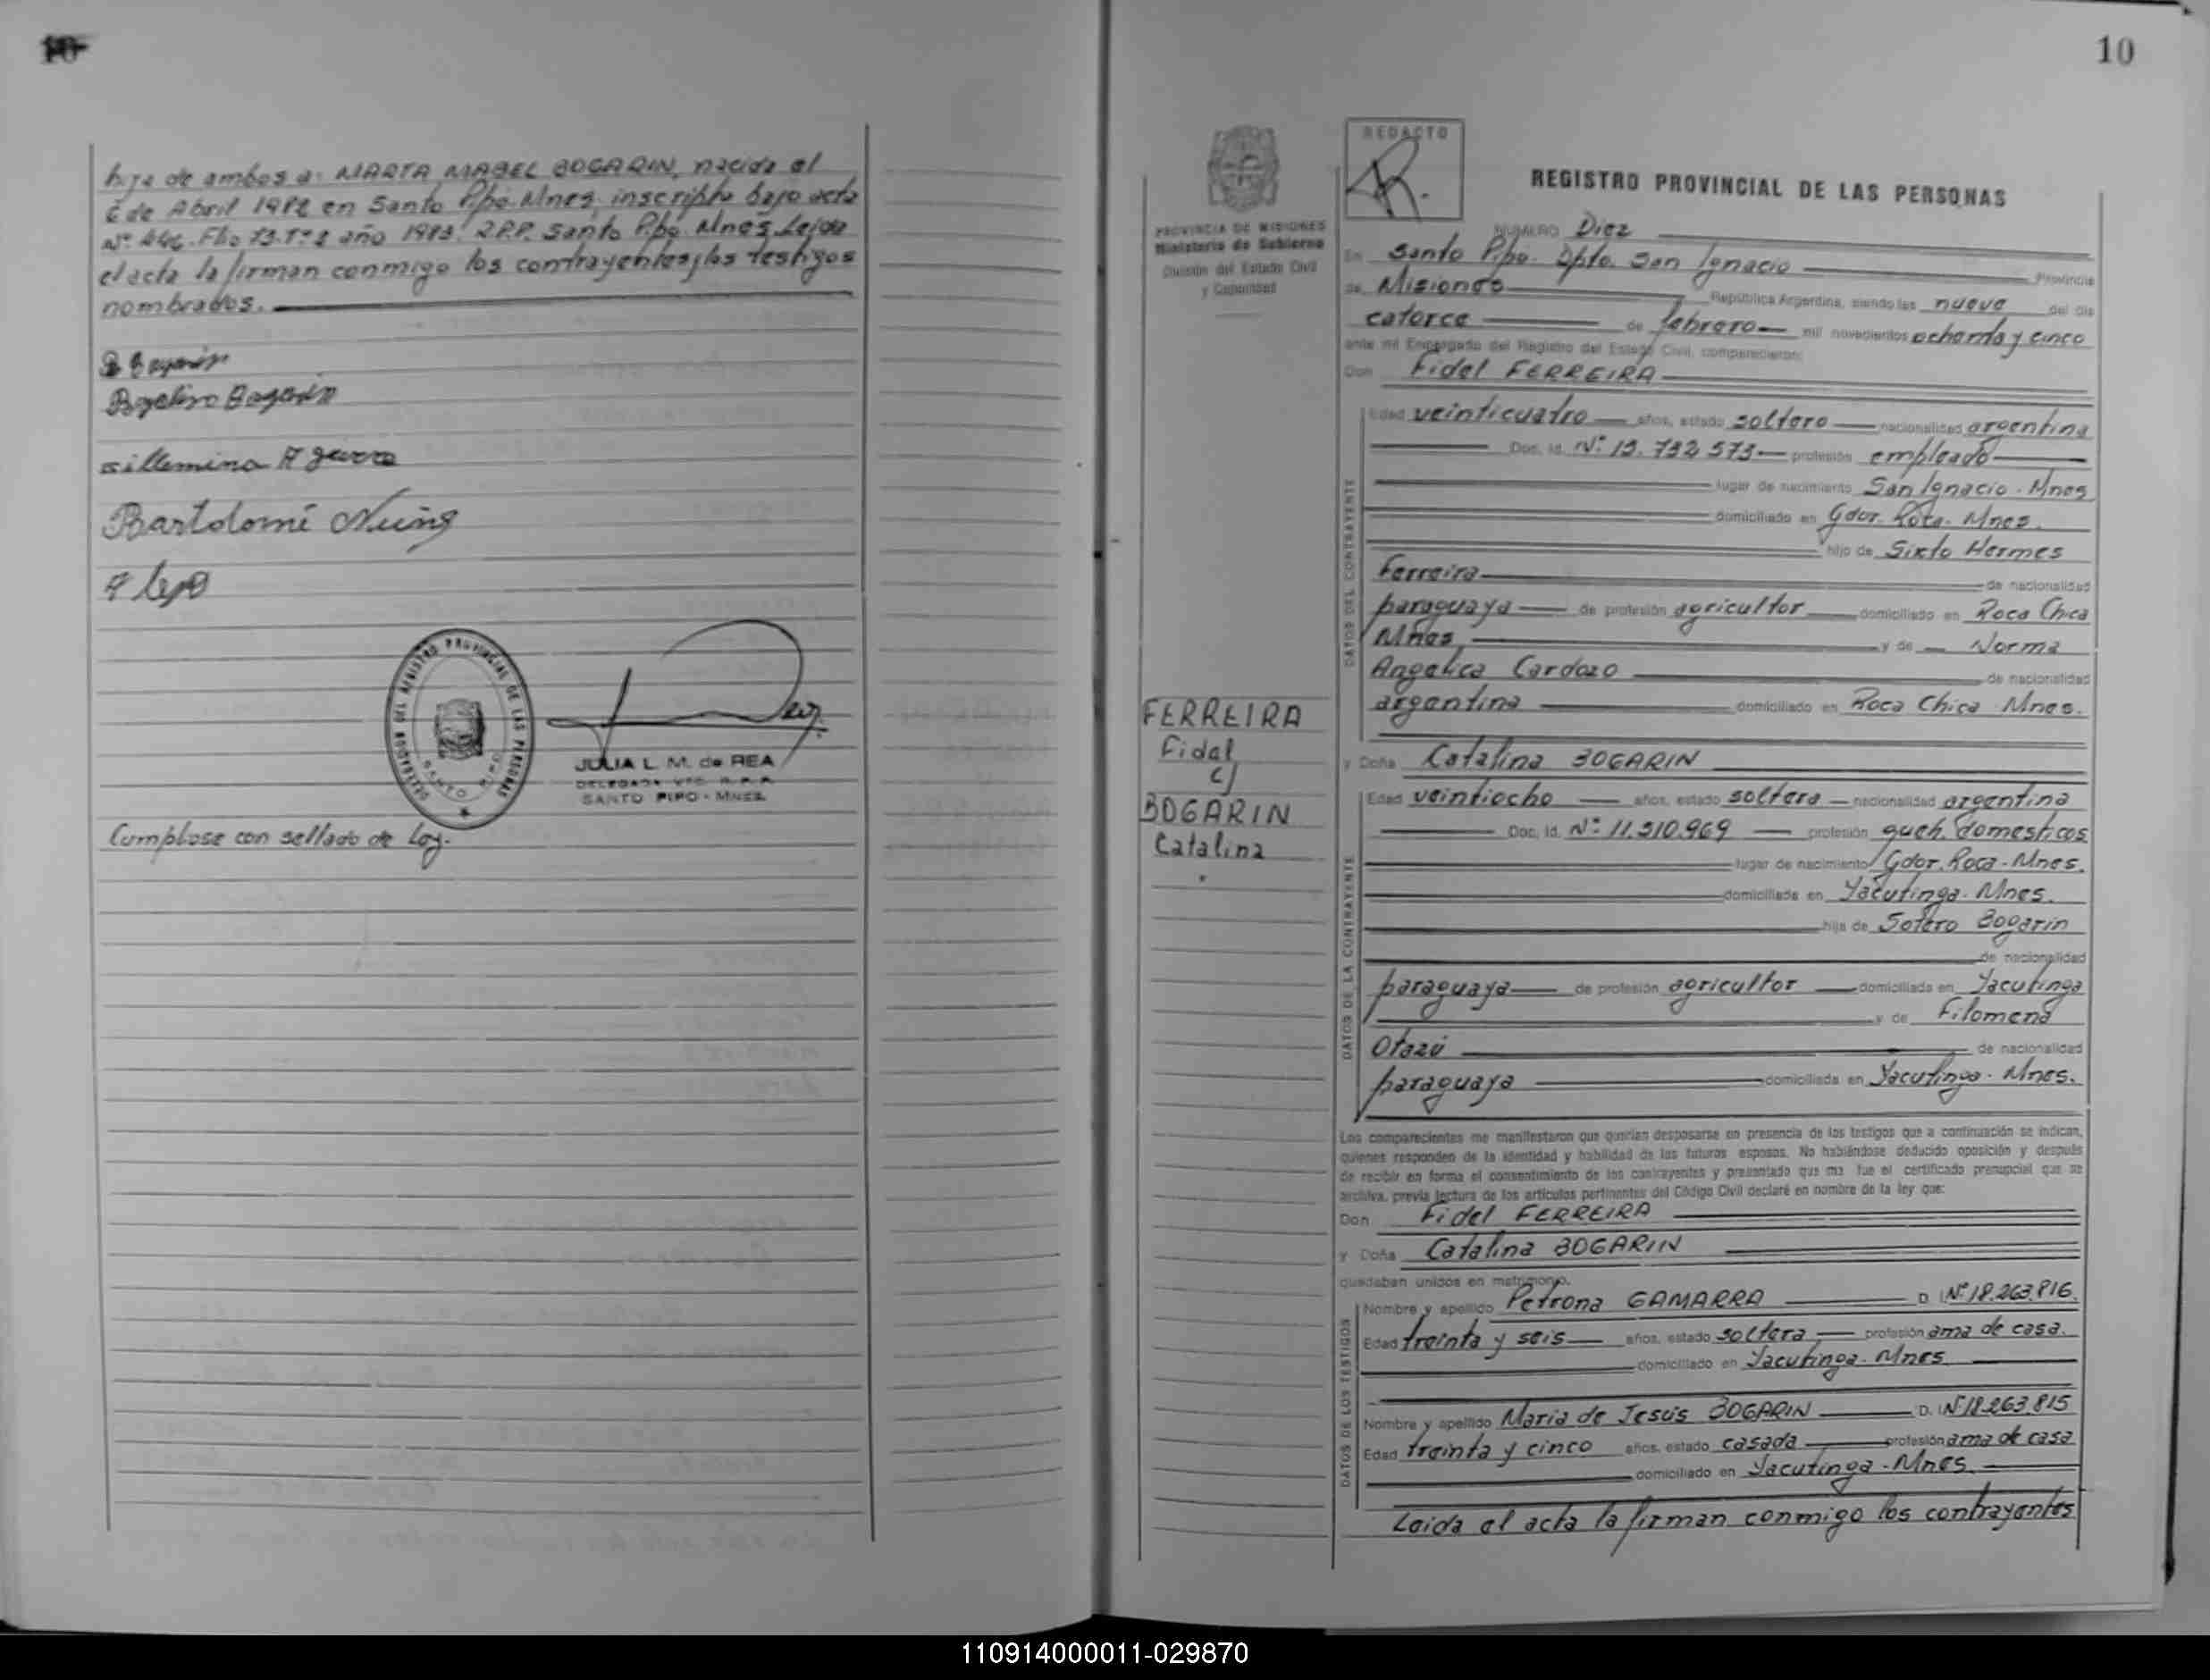 10
hija de ambos a: MARTA MABEL BOGARIN, nacida el
6 de Abril 1982 en Santo Pipó. Mnes, inscripta bajo acta
Nº Flio 73. Tº 2 año 1983. R.P.P. Santo Pipó. Mnes. Leída
el acta la firman conmigo los contrayentes y los testigos
nombrados.
Bogarin
Bartolomé
DELEGACION DEL REGISTRO PROVINCIAL DE LAS PERSONAS
SANTO PIPO
JULIA L. M. de REA
DELEGADA R. P. P.
SANTO PIPO - MNES.
Cumplase con sellado de Ley.
10
PROVINCIA DE MISIONES
Ministerio de Gobierno
División del Estado Civil
y Capacidad
FERREIRA
Fidel
c/
BOGARIN
Catalina
REDACTO
REGISTRO PROVINCIAL DE LAS PERSONAS
NUMERO Diez
En Santo Pipó. Dpto. San Ignacio Provincia
de Misiones República Argentina, siendo las nueve del día
catorce de febrero mil novecientos ochenta y cinco
ante mí Encargado del Registro del Estado Civil, comparecieron:
Don Fidel FERREIRA
DATOS DEL CONTRAYENTE
Edad veinticuatro años, estado soltero nacionalidad argentina
Doc. Id. Nº 13.732 573 profesión empleado
lugar de nacimiento San Ignacio - Mnes
domiciliado en Gdor. Roca. Mnes.
hijo de Sixto Hermes
Ferreira de nacionalidad
paraguaya de profesión agricultor domiciliado en Roca Chica
Mnes, y de Norma
Angelica Cardozo de nacionalidad
argentina domiciliado en Roca Chica - Mnes.
y Doña Catalina BOGARIN
DATOS DE LA CONTRAYENTE
Edad veintiocho años, estado soltera nacionalidad argentina
Doc. Id. Nº 11.510.969 profesión queh. domesticos
lugar de nacimiento Gdor. Roca - Mnes.
domiciliada en Yacutinga - Mnes.
hija de Sotero Bogarin
de nacionalidad
paraguaya de profesión agricultor domiciliada en Yacutinga
y de Filomena
Otazú de nacionalidad
paraguaya domiciliada en Yacutinga - Mnes.
Los comparecientes me manifestaron que querían desposarse en presencia de los testigos que a continuación se indican,
quienes responden de la identidad y habilidad de los futuros esposos. No habiéndose deducido oposición y después
de recibir en forma el consentimiento de los contrayentes y presentado que me fue el certificado prenupcial que se
archiva, previa lectura de los artículos pertinentes del Código Civil declaré en nombre de la ley que:
Don Fidel FERREIRA
y Doña Catalina BOGARIN
quedaban unidos en matrimonio.
DATOS DE LOS TESTIGOS
Nombre y apellido Petrona GAMARRA D. I. Nº 18.263.816.
Edad treinta y seis años, estado soltera profesión ama de casa.
domiciliado en Yacutinga - Mnes
Nombre y apellido Maria de Jesús BOGARIN D. I. Nº 18.263.815
Edad treinta y cinco años, estado casada profesión ama de casa
domiciliado en Yacutinga - Mnes.
Leída el acta la firman conmigo los contrayentes
110914000011-029870